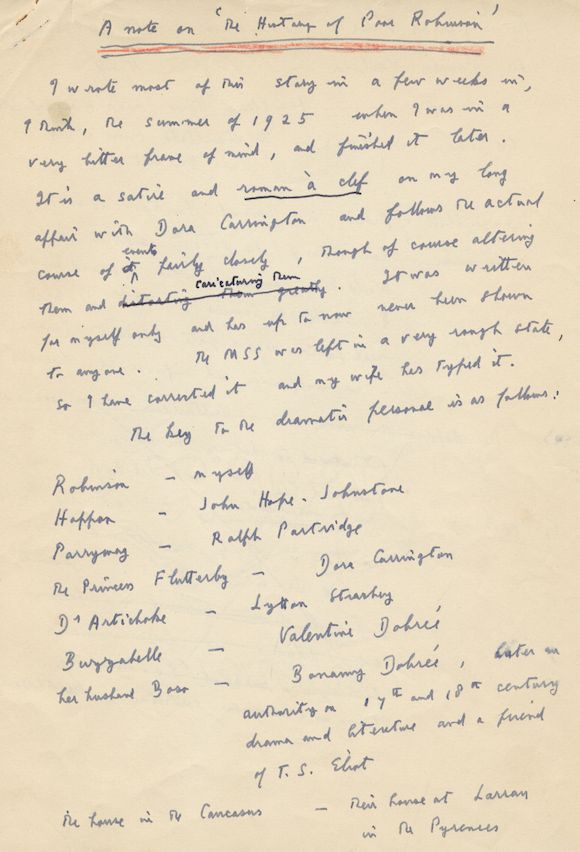 A note on 'The History of Poor Robinson'
I wrote most of this story in a few weeks in,
I think, the summer of 1925 when I was in a
very bitter frame of mind, and finished it later.
It is a satire and roman à clef on my long
affair with Dora Carrington and follows the actual
course of events fairly closely, though of course altering
them and distorting them greatly caricaturing them. It was written
for myself only and has up to now never been shown
to anyone. The MSS was left in a very rough state,
so I have corrected it and my wife has typed it.
The key to the dramatis personae is as follows:
Robinson – myself
Happan – John Hope-Johnstone
Parrymog – Ralph Partridge
The Princess Flutterby – Dora Carrington
Dr Artichoke – Lytton Strachey
Buzzabelle – Valentine Dobrée
her husband Boso – Bonamy Dobrée, later an
authority on 17th and 18th century
drama and literature and a friend
of T. S. Eliot
The house in the Caucasus – their house at Larrau
in the Pyrenees